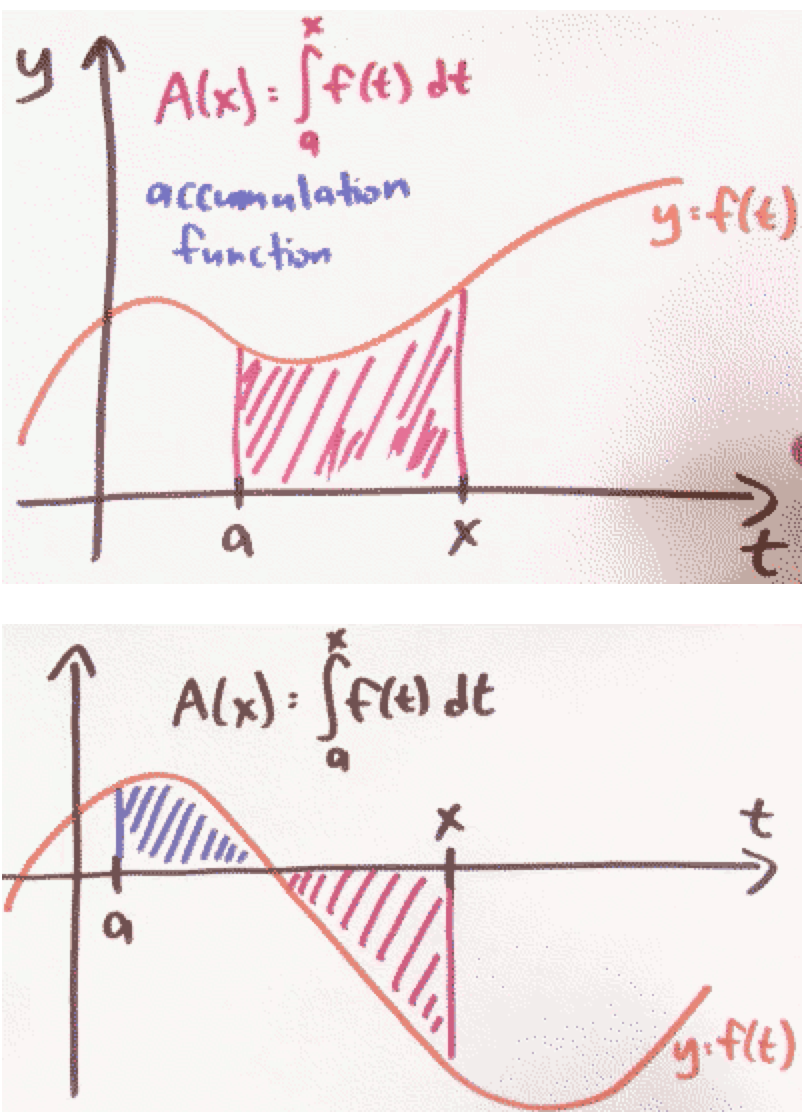 y
A(x) = ∫ₐˣ f(t) dt
accumulation
function
y = f(t)
a
x
t
A(x) = ∫ₐˣ f(t) dt
x
t
a
y = f(t)